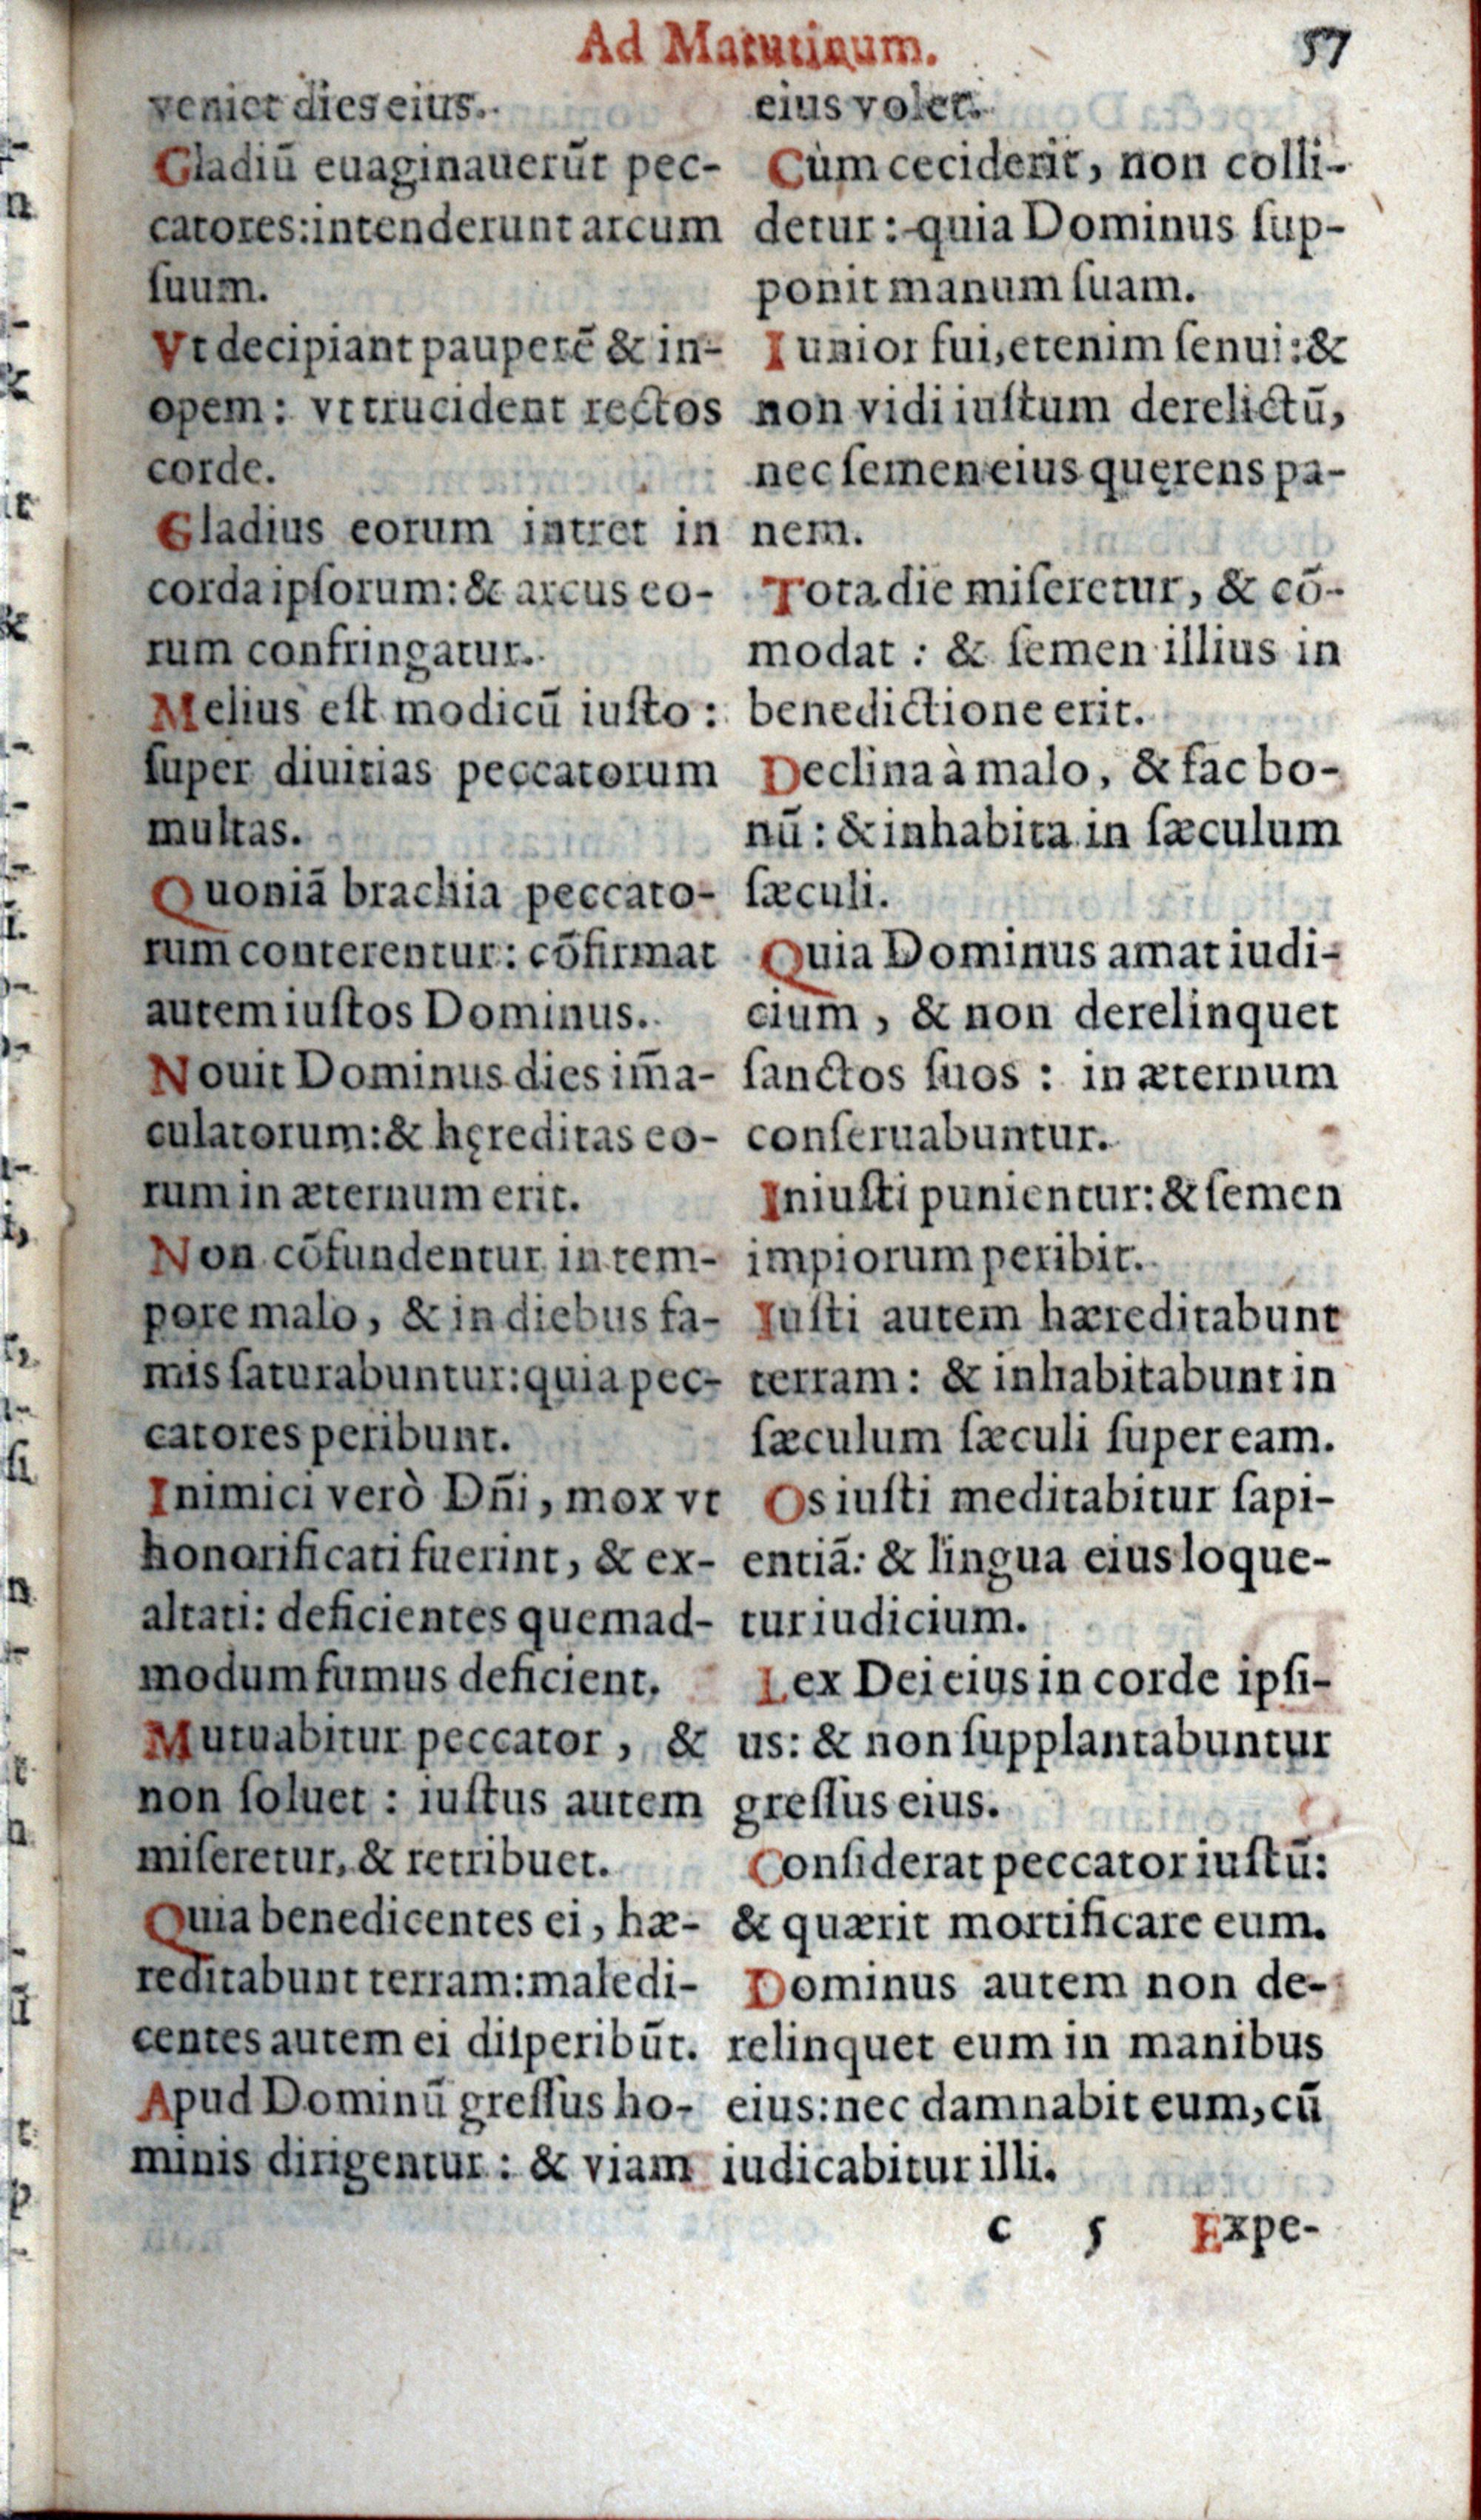 Ad Matutinum. 57
veniet dies eius.
Gladiū euaginauerūt pec-
catores: intenderunt arcum
ſuum.
Vt decipiant pauperē & in-
opem: vt trucident rectos
corde.
Gladius eorum intret in
corda ipſorum: & arcus eo-
rum confringatur.
Melius eſt modicū iuſto:
ſuper diuitias peccatorum
multas.
Quoniā brachia peccato-
rum conterentur: cōfirmat
autem iuſtos Dominus.
Nouit Dominus dies im̄a-
culatorum: & hęreditas eo-
rum in æternum erit.
Non cōfundentur in tem-
pore malo, & in diebus fa-
mis ſaturabuntur: quia pec-
catores peribunt.
Inimici verò Dn̄i, mox vt
honorificati fuerint, & ex-
altati: deficientes quemad-
modum fumus deficient.
Mutuabitur peccator, &
non ſoluet: iuſtus autem
miſeretur, & retribuet.
Quia benedicentes ei, hæ-
reditabunt terram: maledi-
centes autem ei diſperibūt.
Apud Dominū greſſus ho-
minis dirigentur: & viam
eius volet.
Cùm ceciderit, non colli-
detur: quia Dominus ſup-
ponit manum ſuam.
Iunior fui, etenim ſenui: &
non vidi iuſtum derelictū,
nec ſemen eius quęrens pa-
nem.
Tota die miſeretur, & cō-
modat: & ſemen illius in
benedictione erit.
Declina à malo, & fac bo-
nū: & inhabita in ſæculum
ſæculi.
Quia Dominus amat iudi-
cium, & non derelinquet
ſanctos ſuos: in æternum
conſeruabuntur.
Iniuſti punientur: & ſemen
impiorum peribit.
Iuſti autem hæreditabunt
terram: & inhabitabunt in
ſæculum ſæculi ſuper eam.
Os iuſti meditabitur ſapi-
entiā: & lingua eius loque-
tur iudicium.
Lex Dei eius in corde ipſi-
us: & non ſupplantabuntur
greſſus eius.
Conſiderat peccator iuſtū:
& quærit mortificare eum.
Dominus autem non de-
relinquet eum in manibus
eius: nec damnabit eum, cū
iudicabitur illi.
c 5 Expe-